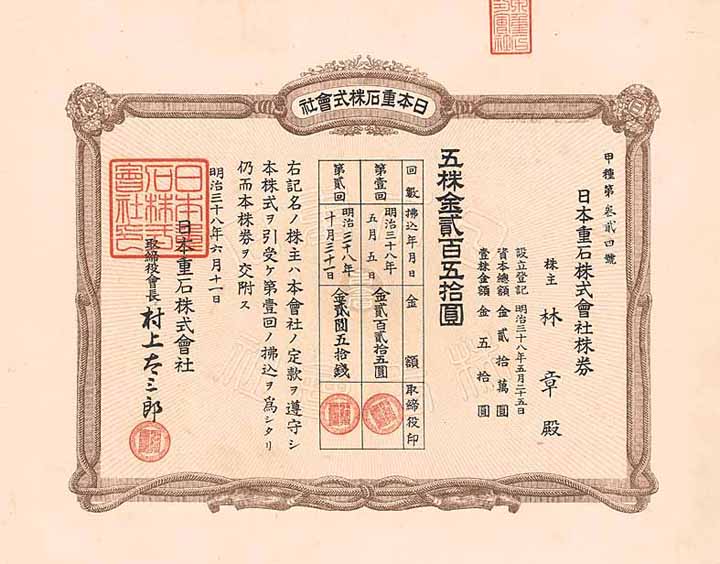 日本重石株式會社
甲種第叁貳四號
日本重石株式會社株券
株主 林章殿
設立登記 明治三十八年五月二十五日
資本總額 金貳拾萬圓
壹株金額 金五拾圓
五株金貳百五拾圓
回數 拂込年月日 金額 取締役印
第壹回 明治三十八年五月五日 金貳百貳拾五圓
第貳回 明治三十八年十月三十一日 金貳圓五拾錢
右記名ノ株主ハ本會社ノ定款ヲ遵守シ
本株式ヲ引受ケ第壹回ノ拂込ヲ為シタリ
仍而本株券ヲ交附ス
明治三十八年六月十一日
日本重石株式會社
取締役會長 村上太三郎